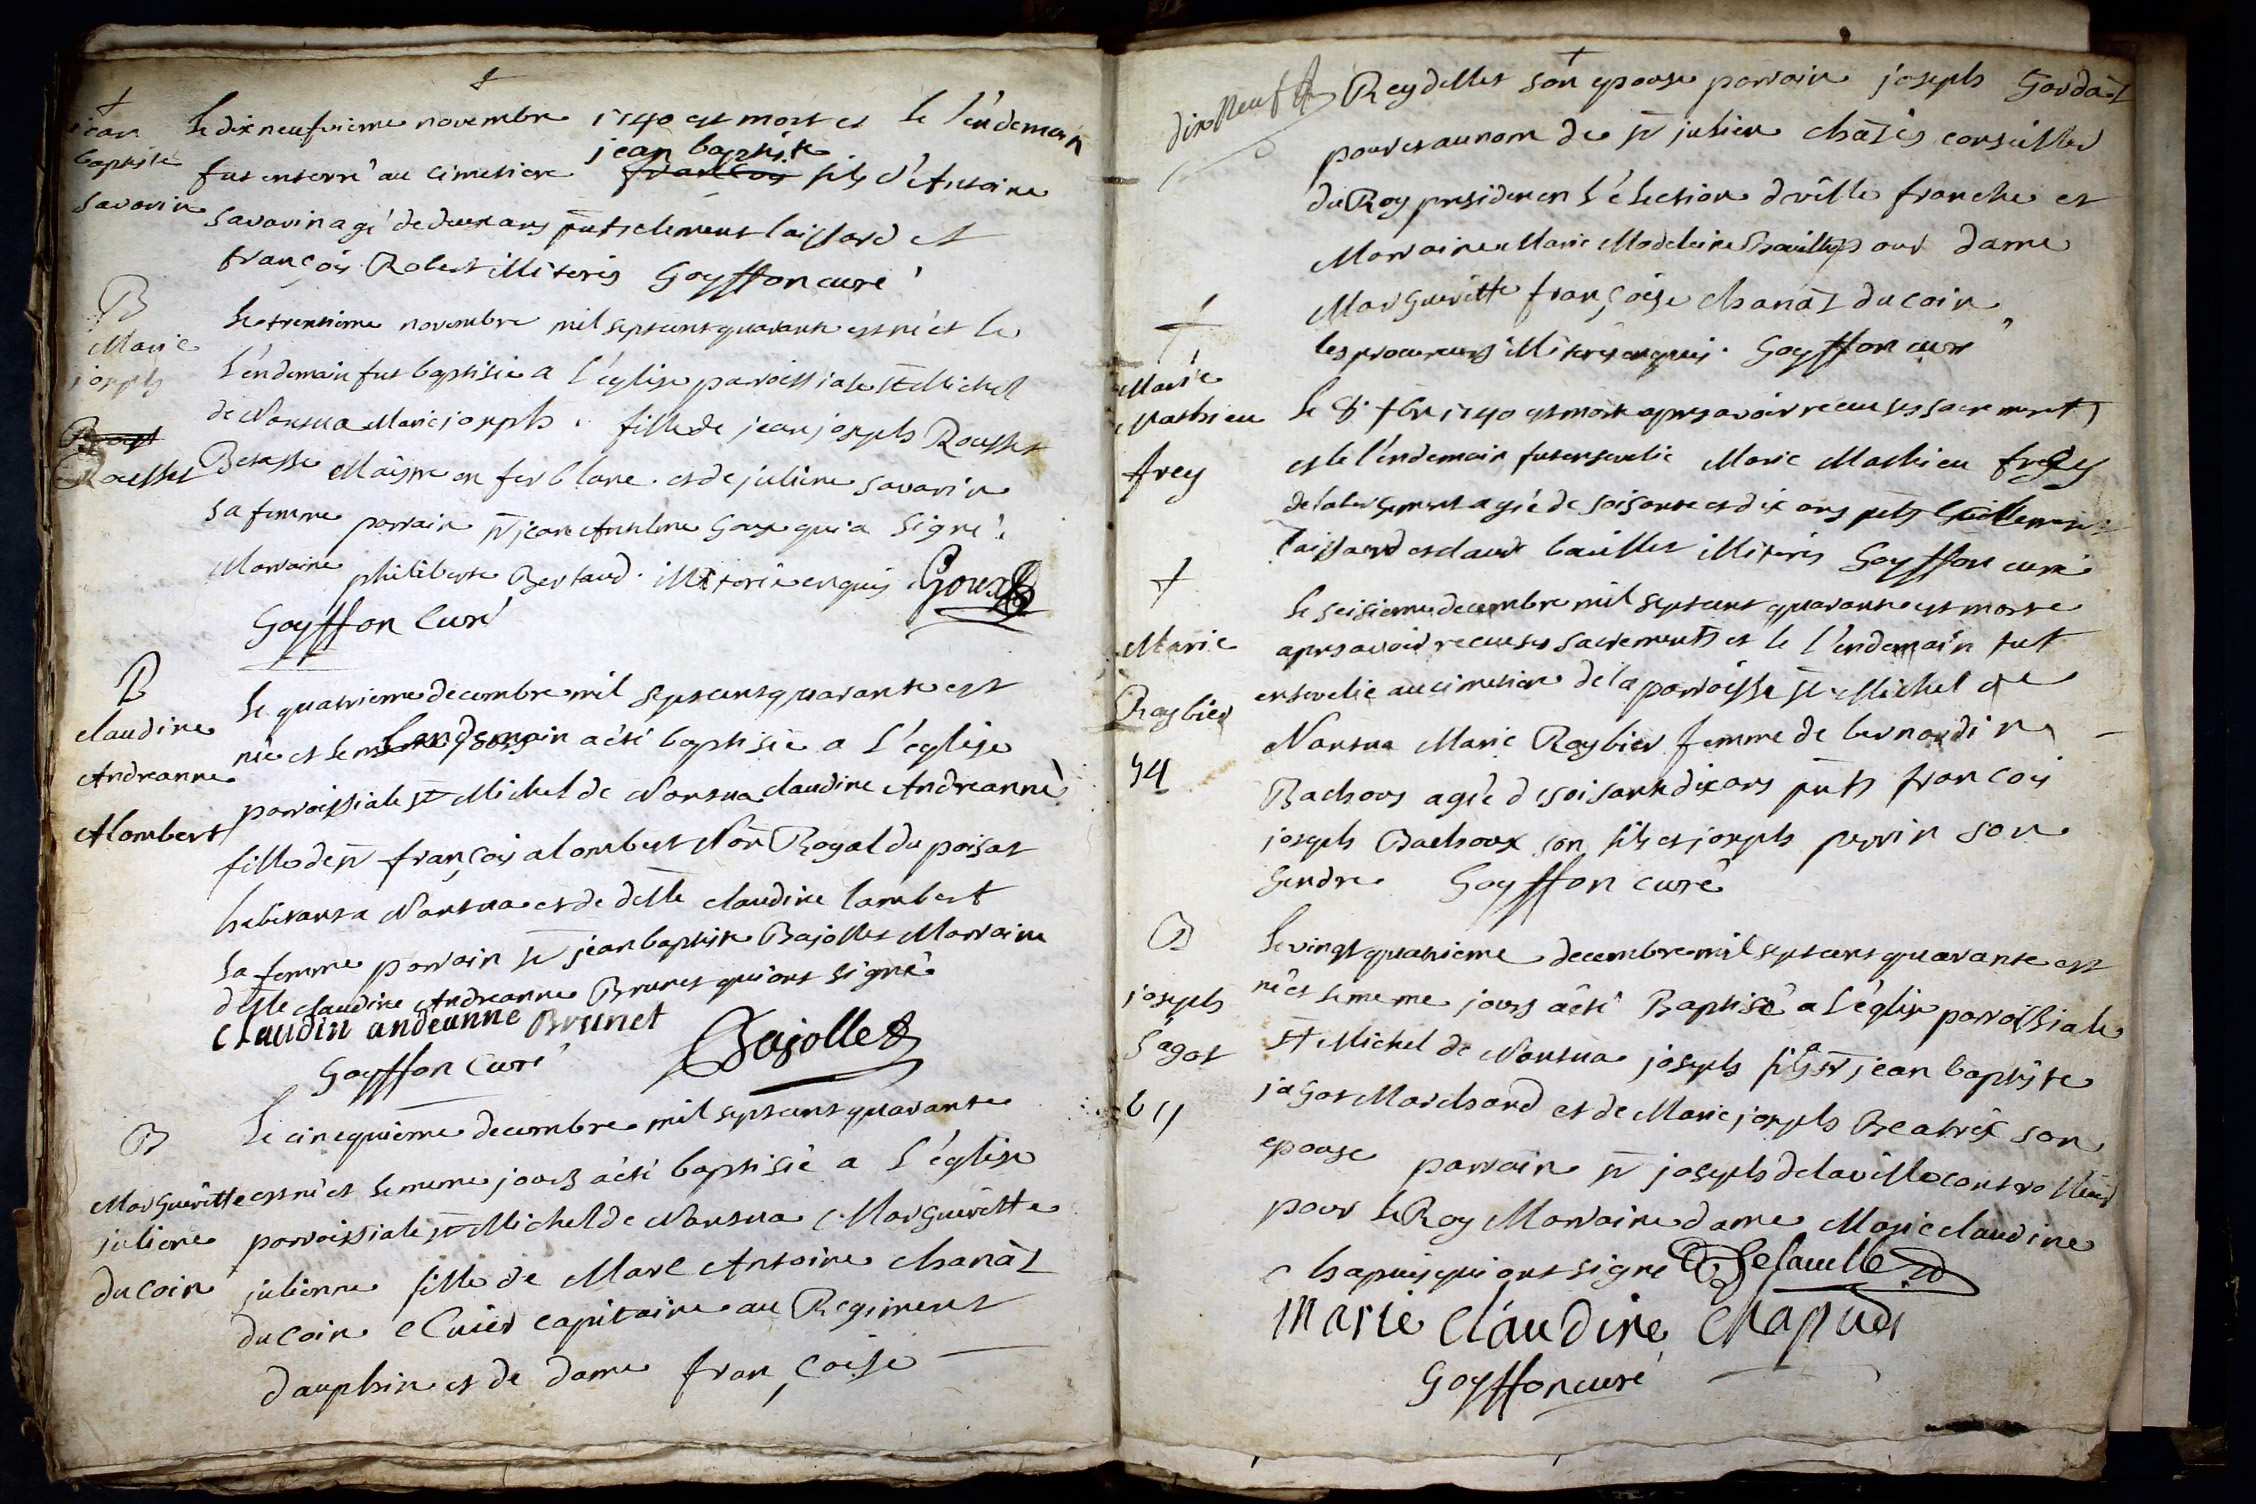 jean
baptiste
Savarin
Le dix neufvieme novembre 1740 est mort et le l'endemain
fut enterré au cimetiere jean baptiste françois fils d'Antoine
Savarin agé de deux ans pnts clement laissard et
françois Robert illiteris Goyffon curé
B
Marie
joseph
Rousset
Le trentieme novembre mil septcent quarante est né et le
l'endemain fut baptisée a l'église paroissiale St Michel
de Nantua Marie joseph fille de jean joseph Rousset
Maistre en fer blanc et de juliene savarin
sa femme parrain Sr jean Anthelme Goux qui a signé
Marraine philiberte Bertaud illiterée enquis Goux
Goyffon curé
B
claudine
Andreanne
Alombert
Le quatrieme decembre mil septcent quarante est
née et le Landemain a été baptisée a l'église
paroissiale St Michel de Nantua claudine Andreanne
fille de Sr françois alombert Nore Royal du poisat
habitant a Nantua et de delle claudine lambert
sa femme parrain Sr jean baptiste Bajollet Marraine
delle claudine Andreanne Brunet qui ont signé
claudin andeanne Brunet
Goyffon Curé Bajollet
B
Marguèritte
juliene
du coin
Le cinequieme decembre mil septcent quarante
est né et le meme jours a été baptisée a l'église
paroissiale St Michel de Nantua Marguèritte
julienne fille de Marc Antoine chanal
du coin ecuier capitaine au Regiment
dauphin et de dame françoise
dix neuf
Reydellet son epouse parrain joseph Gordat
pour et au nom de Sr julien chatês conseiller
du Roy president en l'élection d ville franche et
Marraine Marie Madeleine pour dame
Margueritte françoise chanal du coin
les procureurs illiterés enquis Goyffon curé
Marie
Mathieu
frey
Le 8e xbre 1740 est morte apres avoir receu ses sacrements
et le l'endemain fut ensevelie Marie Mathieu frey
agée de soisante et dix ans pnts
laissard et claude baillet illiterés Goyffon curé
Marie
Raybier
Le seisieme decembre mil septcent quarante est morte
apres avoir receu ses sacrements et le l'endemain fut
ensevelie au cimetiere de la parroisse St Michel de
Nantua Marie Raybier femme de bernardin
Bachoux agée d soisante dix ans pnts françois
joseph Bachoux son fils et joseph perrin son
Gendre Goyffon curé
B
joseph
jagot
Le vingt quatrieme decembre mil septcent quarante est
né et le meme jours a été Baptisé a l'église parroissiale
St Michel de Nantua joseph fils de Sr jean baptiste
jagot Marchand et de Marie joseph Beatrix son
epouse parrain Sr joseph delaville contrôlleur
pour le Roy Marraine dame Marie claudine
chapuis qui ont signé Delaville
Marie Claudine Chapuis
Goyffon curé